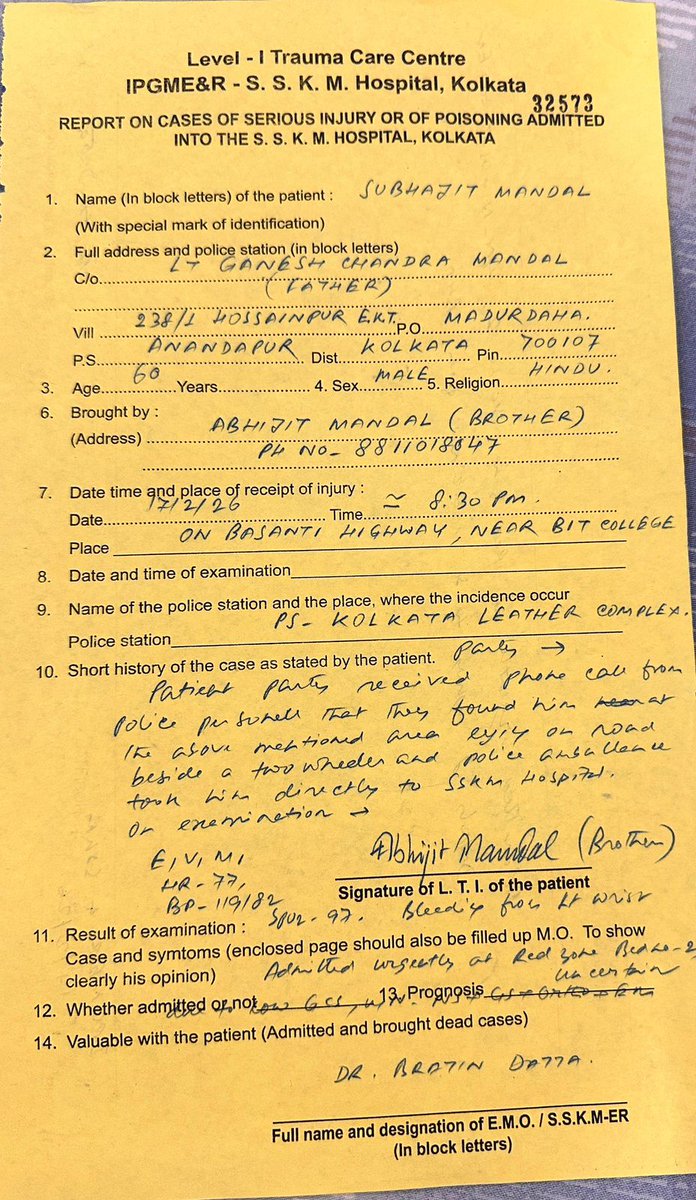 Level - I Trauma Care Centre
IPGME&R - S. S. K. M. Hospital, Kolkata
32573
REPORT ON CASES OF SERIOUS INJURY OR OF POISONING ADMITTED
INTO THE S. S. K. M. HOSPITAL, KOLKATA
1. Name (In block letters) of the patient : SUBHAJIT MANDAL
(With special mark of identification)
2. Full address and police station (in block letters)
C/o LT GANESH CHANDRA MANDAL
(FATHER)
Vill 238/1 HOSSAINPUR E.K.T P.O. MADURDAHA.
P.S. ANANDAPUR Dist. KOLKATA Pin 700107
3. Age 60 Years 4. Sex MALE 5. Religion HINDU.
6. Brought by : ABHIJIT MANDAL (BROTHER)
(Address) PH NO- 8811018647
7. Date time and place of receipt of injury :
Date 17/2/26 Time ≃ 8:30 PM.
Place ON BASANTI HIGHWAY, NEAR BIT COLLEGE
8. Date and time of examination
9. Name of the police station and the place, where the incidence occur
Police station PS- KOLKATA LEATHER COMPLEX.
10. Short history of the case as stated by the patient. Party →
Patient party received phone call from
police personell that they found him at
the above mentioned area on road
beside a two wheeler and police ambullence
took him directly to SSKM Hospital.
On examination →
E, V, M,
HR- 77,
BP- 119/82
Abhijit Mandal (Brother)
Signature of L. T. I. of the patient
SpO2- 97. Bleeding from Lt wrist
11. Result of examination :
Case and symtoms (enclosed page should also be filled up M.O. To show
clearly his opinion) Admitted urgently at Red Zone
12. Whether admitted or not low GCS, 13. Prognosis Uncertain
14. Valuable with the patient (Admitted and brought dead cases)
DR. BRATIN DATTA.
Full name and designation of E.M.O. / S.S.K.M-ER
(In block letters)